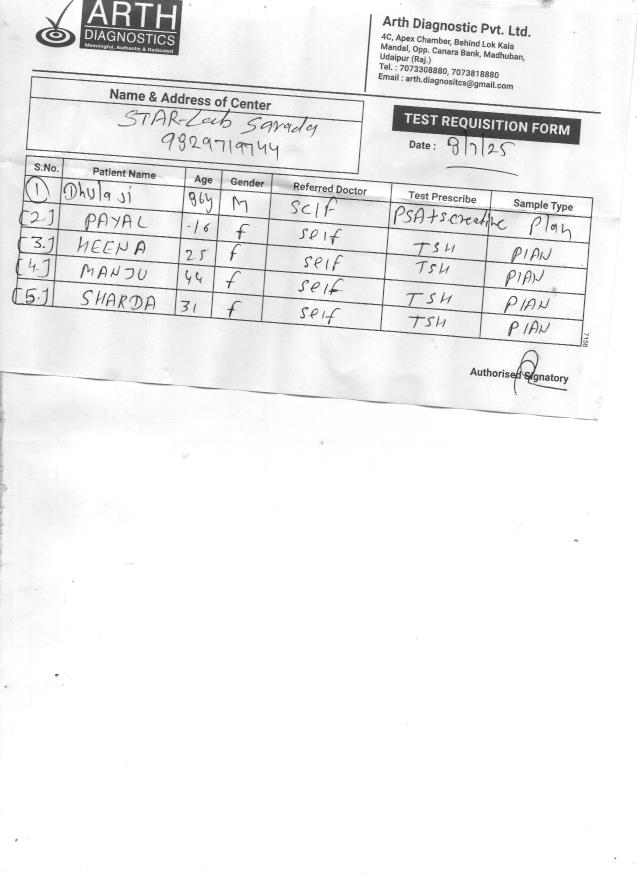 ARTH
DIAGNOSTICS
Meaningful, Authentic & Dedicated
Arth Diagnostic Pvt. Ltd.
4C, Apex Chamber, Behind Lok Kala
Mandal, Opp. Canara Bank, Madhuban,
Udaipur (Raj.)
Tel. : 7073308880, 7073818880
Email : arth.diagnositcs@gmail.com
Name & Address of Center
STAR-Lab Sarada
9829719744
TEST REQUISITION FORM
Date : 8/7/25
S.No. Patient Name Age Gender Referred Doctor Test Prescribe Sample Type
1 Dhulaji 86y M self PSA+S.creatine Plan
[2.] PAYAL 16 f self TSH PIAN
[3.] HEENA 25 f self TSH PIAN
[4.] MANJU 44 f self TSH PIAN
[5.] SHARDA 31 f self TSH PIAN
7158
Authorised Signatory